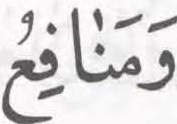 وَمَنَٰفِعُ